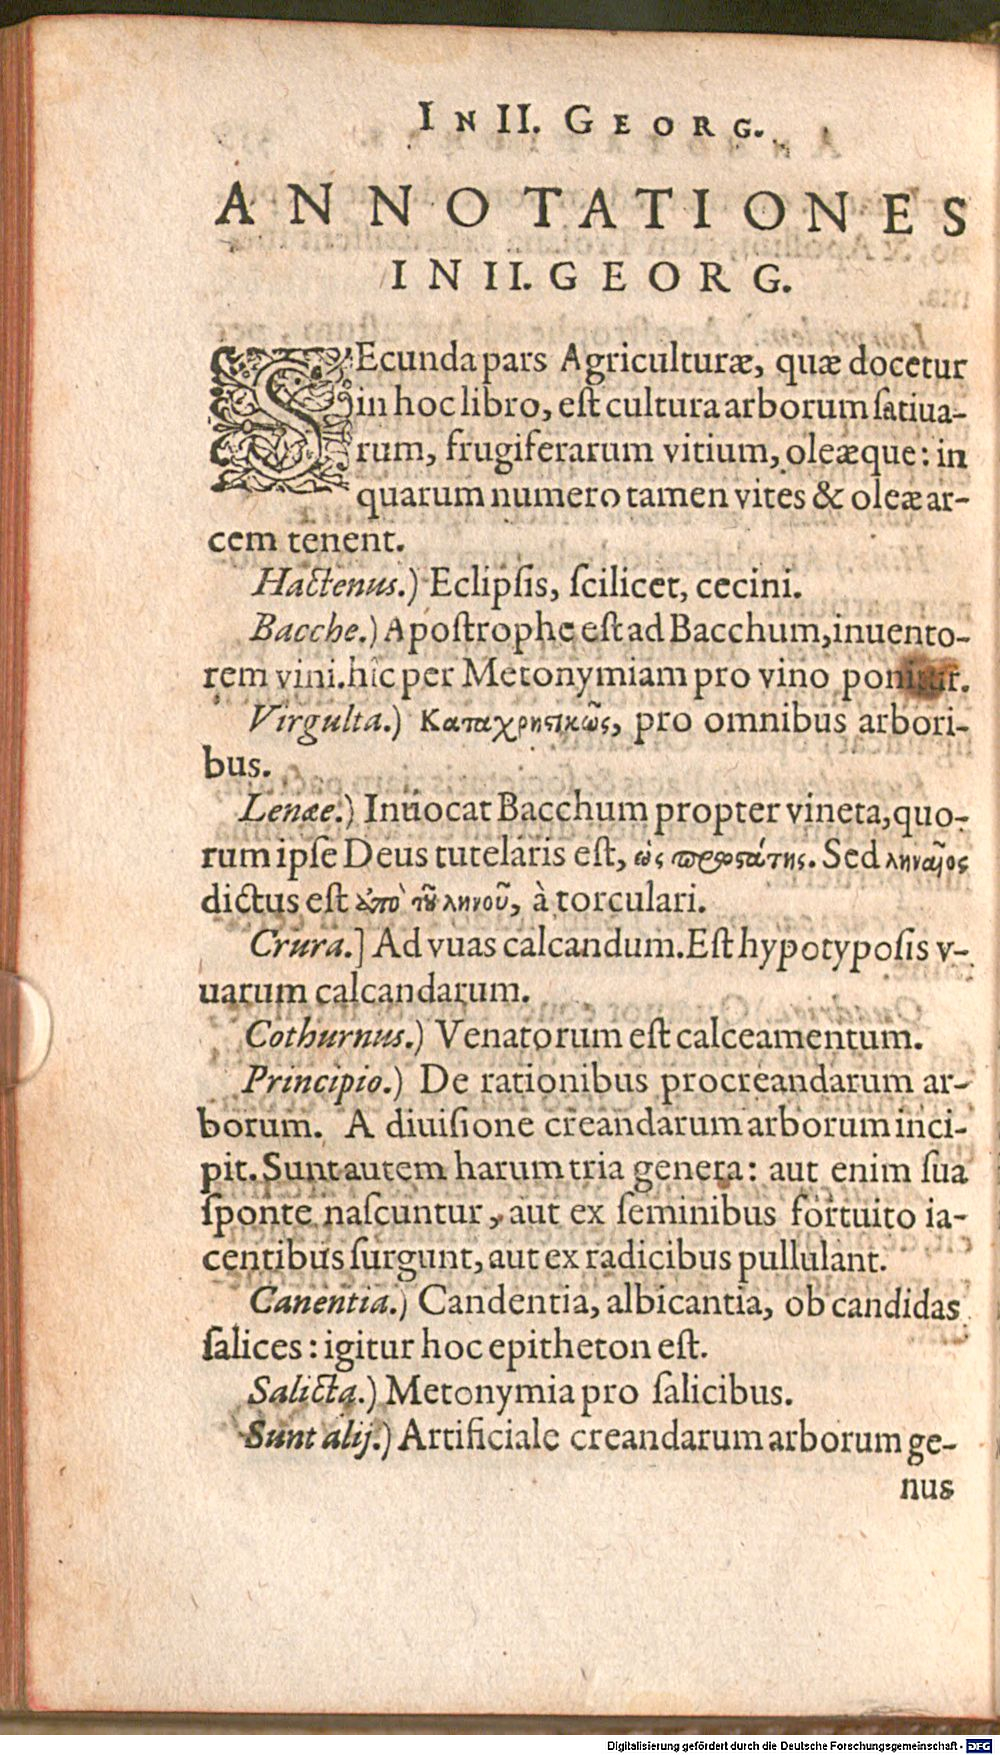 In II. Georg.
ANNOTATIONES
IN II. GEORG.
SEcunda pars Agriculturæ, quæ docetur
in hoc libro, eſt cultura arborum ſatiua-
rum, frugiferarum vitium, oleæque: in
quarum numero tamen vites & oleæ ar-
cem tenent.
Hactenus.) Eclipſis, ſcilicet, cecini.
Bacche.) Apoſtrophe eſt ad Bacchum, inuento-
rem vini. hîc per Metonymiam pro vino ponitur.
Virgulta.) Καταχρηστικῶς, pro omnibus arbori-
bus.
Lenæe.) Inuocat Bacchum propter vineta, quo-
rum ipſe Deus tutelaris eſt, ὡς προστάτης. Sed ληναῖος
dictus eſt ἀπὸ τοῦ ληνοῦ, à torculari.
Crura.] Ad vuas calcandum. Eſt hypotypoſis v-
uarum calcandarum.
Cothurnus.) Venatorum eſt calceamentum.
Principio.) De rationibus procreandarum ar-
borum. A diuiſione creandarum arborum inci-
pit. Sunt autem harum tria genera: aut enim ſua
ſponte naſcuntur, aut ex ſeminibus fortuito ia-
centibus ſurgunt, aut ex radicibus pullulant.
Canentia.) Candentia, albicantia, ob candidas
ſalices: igitur hoc epitheton eſt.
Salicta.) Metonymia pro ſalicibus.
Sunt alij.) Artificiale creandarum arborum ge-
nus
Digitalisierung gefördert durch die Deutsche Forschungsgemeinschaft - DFG